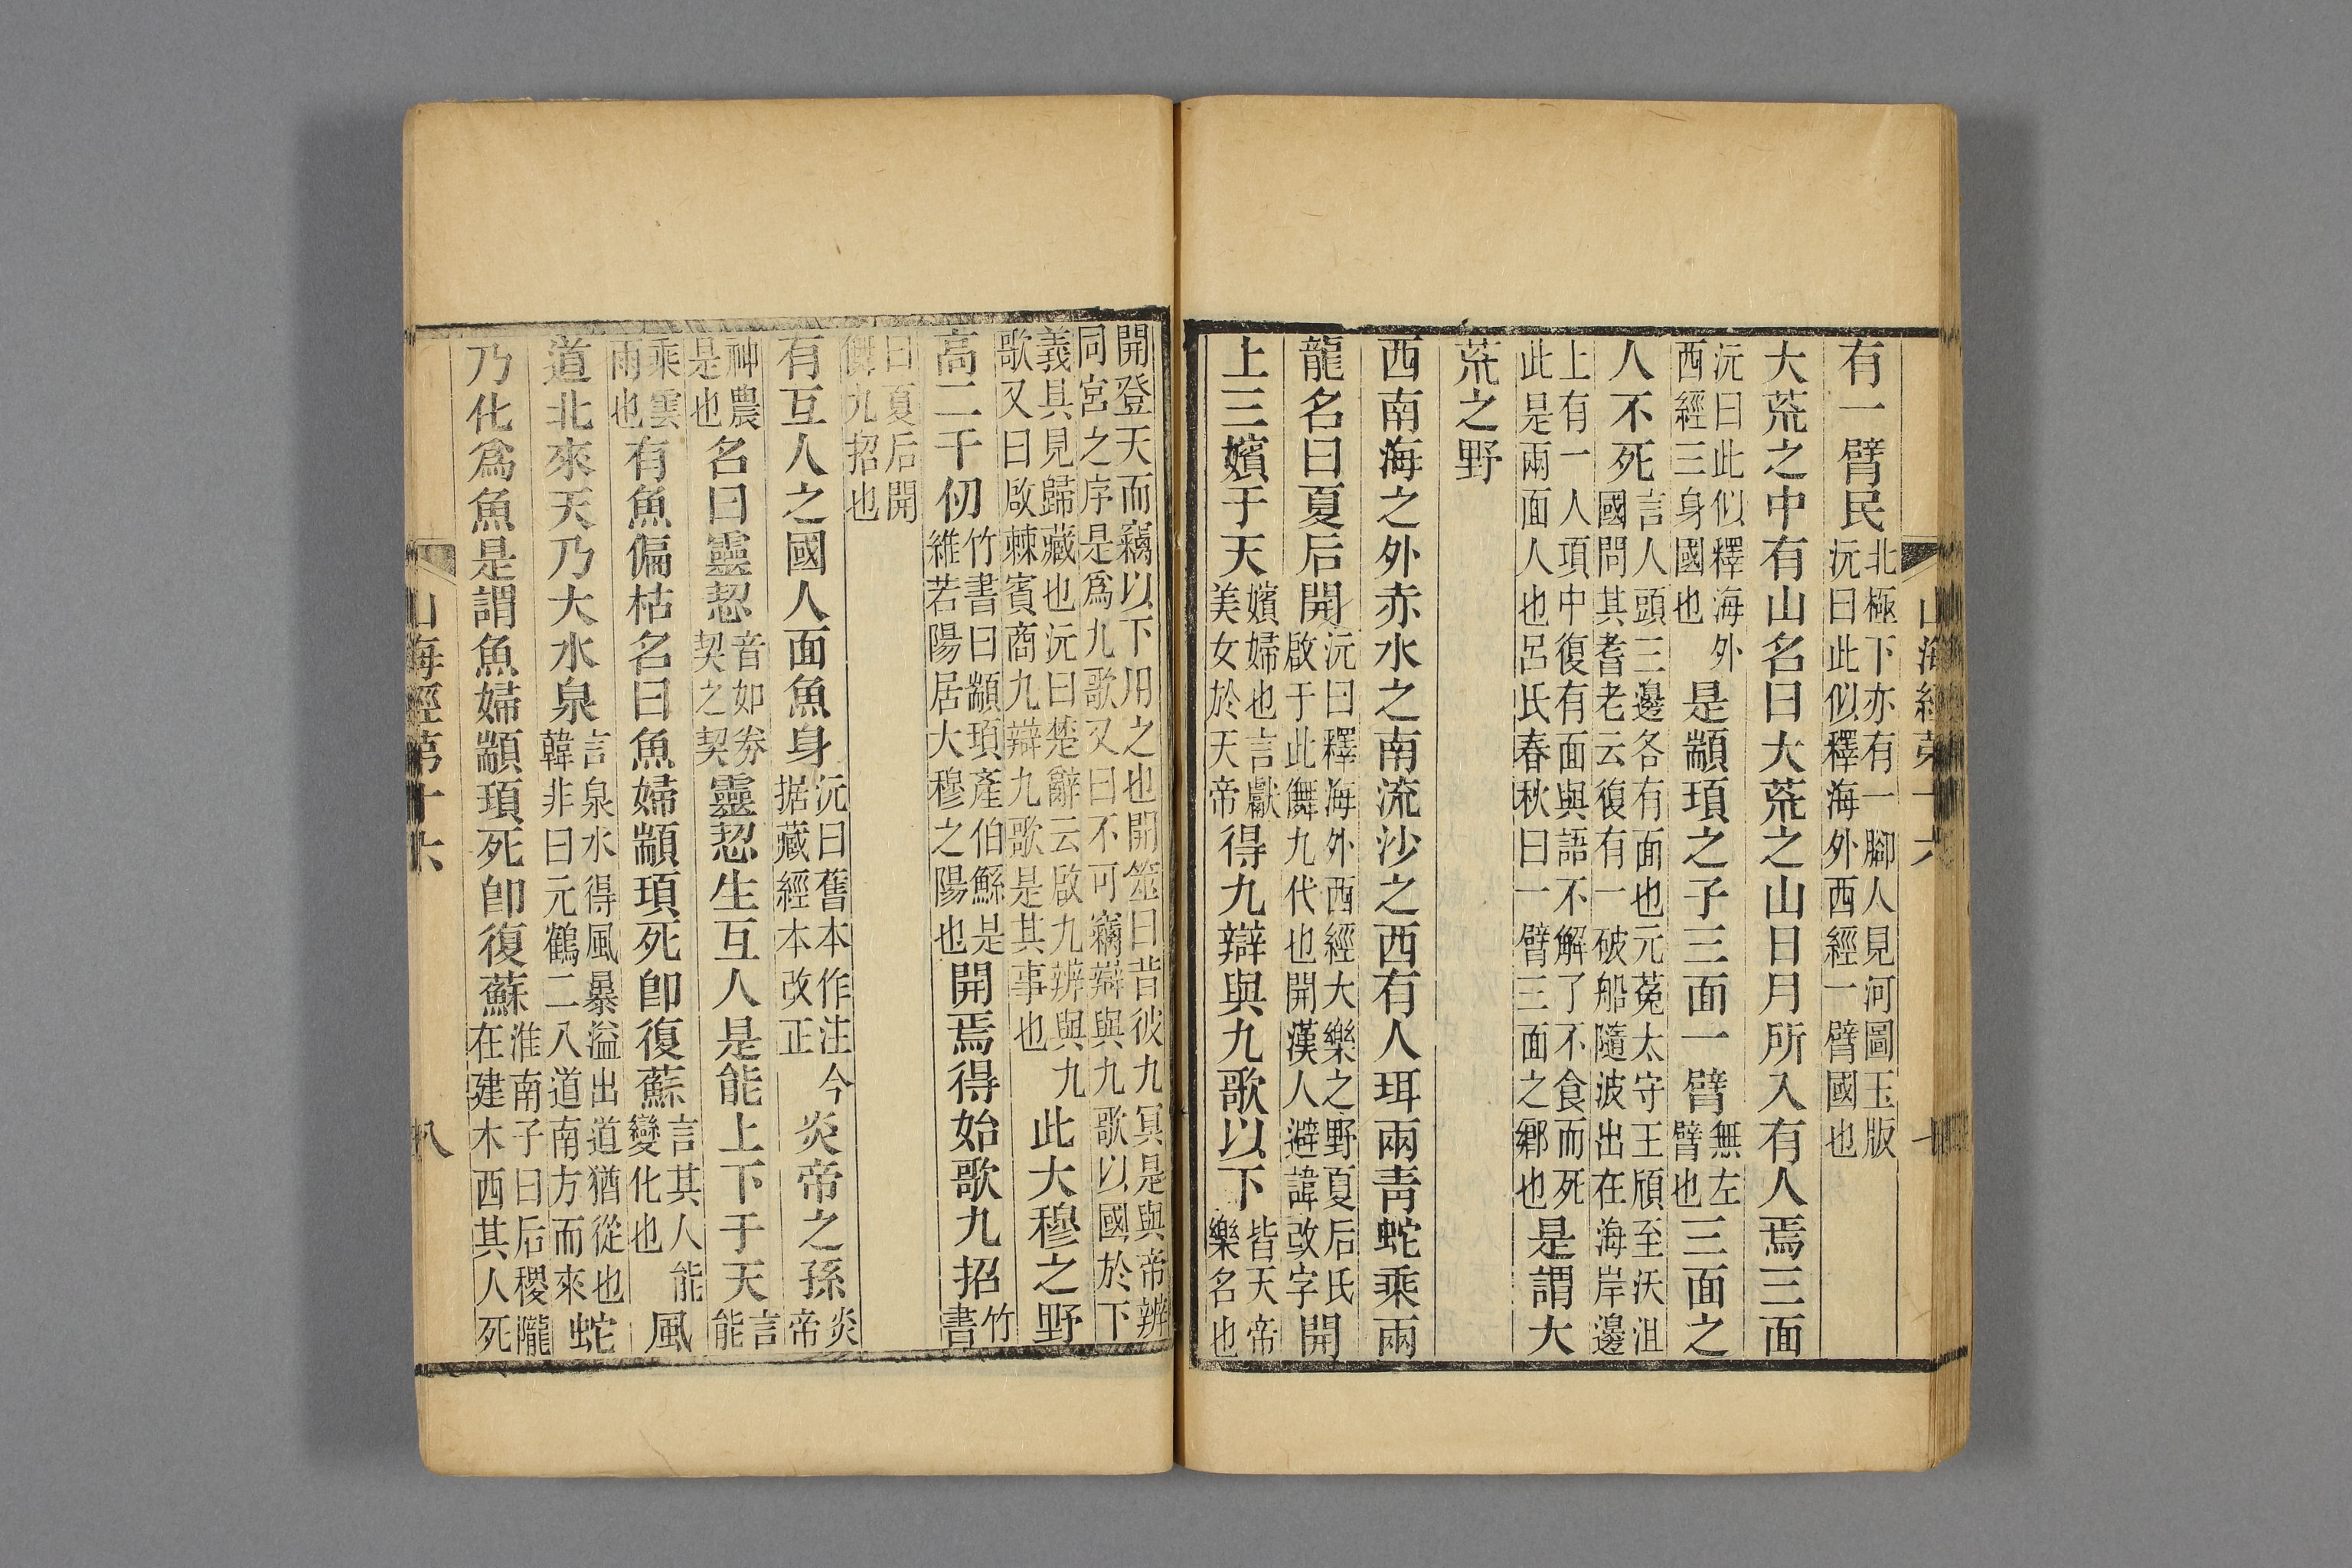 山海經第十六
有一臂民北極下亦有一腳人見河圖玉版沅曰此似釋海外西經一臂國也
大荒之中有山名曰大荒之山日月所入有人焉三面
沅曰此似釋海外西經三身國也是顓頊之子三面一臂無左臂也三面之
人不死言人頭三邊各有面也元菟太守王頎至沃沮國問其耆老云復有一破船隨波出在海岸邊
上有一人項中復有面與語不解了不食而死此是兩面人也呂氏春秋曰一臂三面之鄉也是謂大
荒之野
西南海之外赤水之南流沙之西有人珥兩青蛇乘兩
龍名曰夏后開沅曰釋海外西經大樂之野夏后氏啟于此儛九代也開漢人避諱改字開
上三嬪于天嬪婦也言獻美女於天帝得九辯與九歌以下皆天帝樂名也
開登天而竊以下用之也開筮曰昔彼九冥是與帝辨同宮之序是爲九歌又曰不可竊辯與九歌以國於下
義具見歸藏也沅曰楚辭云啟九辨與九歌又曰啟棘賓商九辯九歌是其事也此大穆之野
高二千仞竹書曰顓頊產伯鯀是維若陽居大穆之陽也開焉得始歌九招竹書
曰夏后開儛九招也
有互人之國人面魚身沅曰舊本作注今据藏經本改正炎帝之孫炎帝
神農是也名曰靈恝音如劵契之契靈恝生互人是能上下于天言能
乘雲雨也有魚偏枯名曰魚婦顓頊死卽復蘇言其人能變化也風
道北來天乃大水泉言泉水得風暴溢出道猶從也韓非曰元鶴二八道南方而來蛇
乃化爲魚是謂魚婦顓頊死卽復蘇淮南子曰后稷隴在建木西其人死
山海經第十六
八